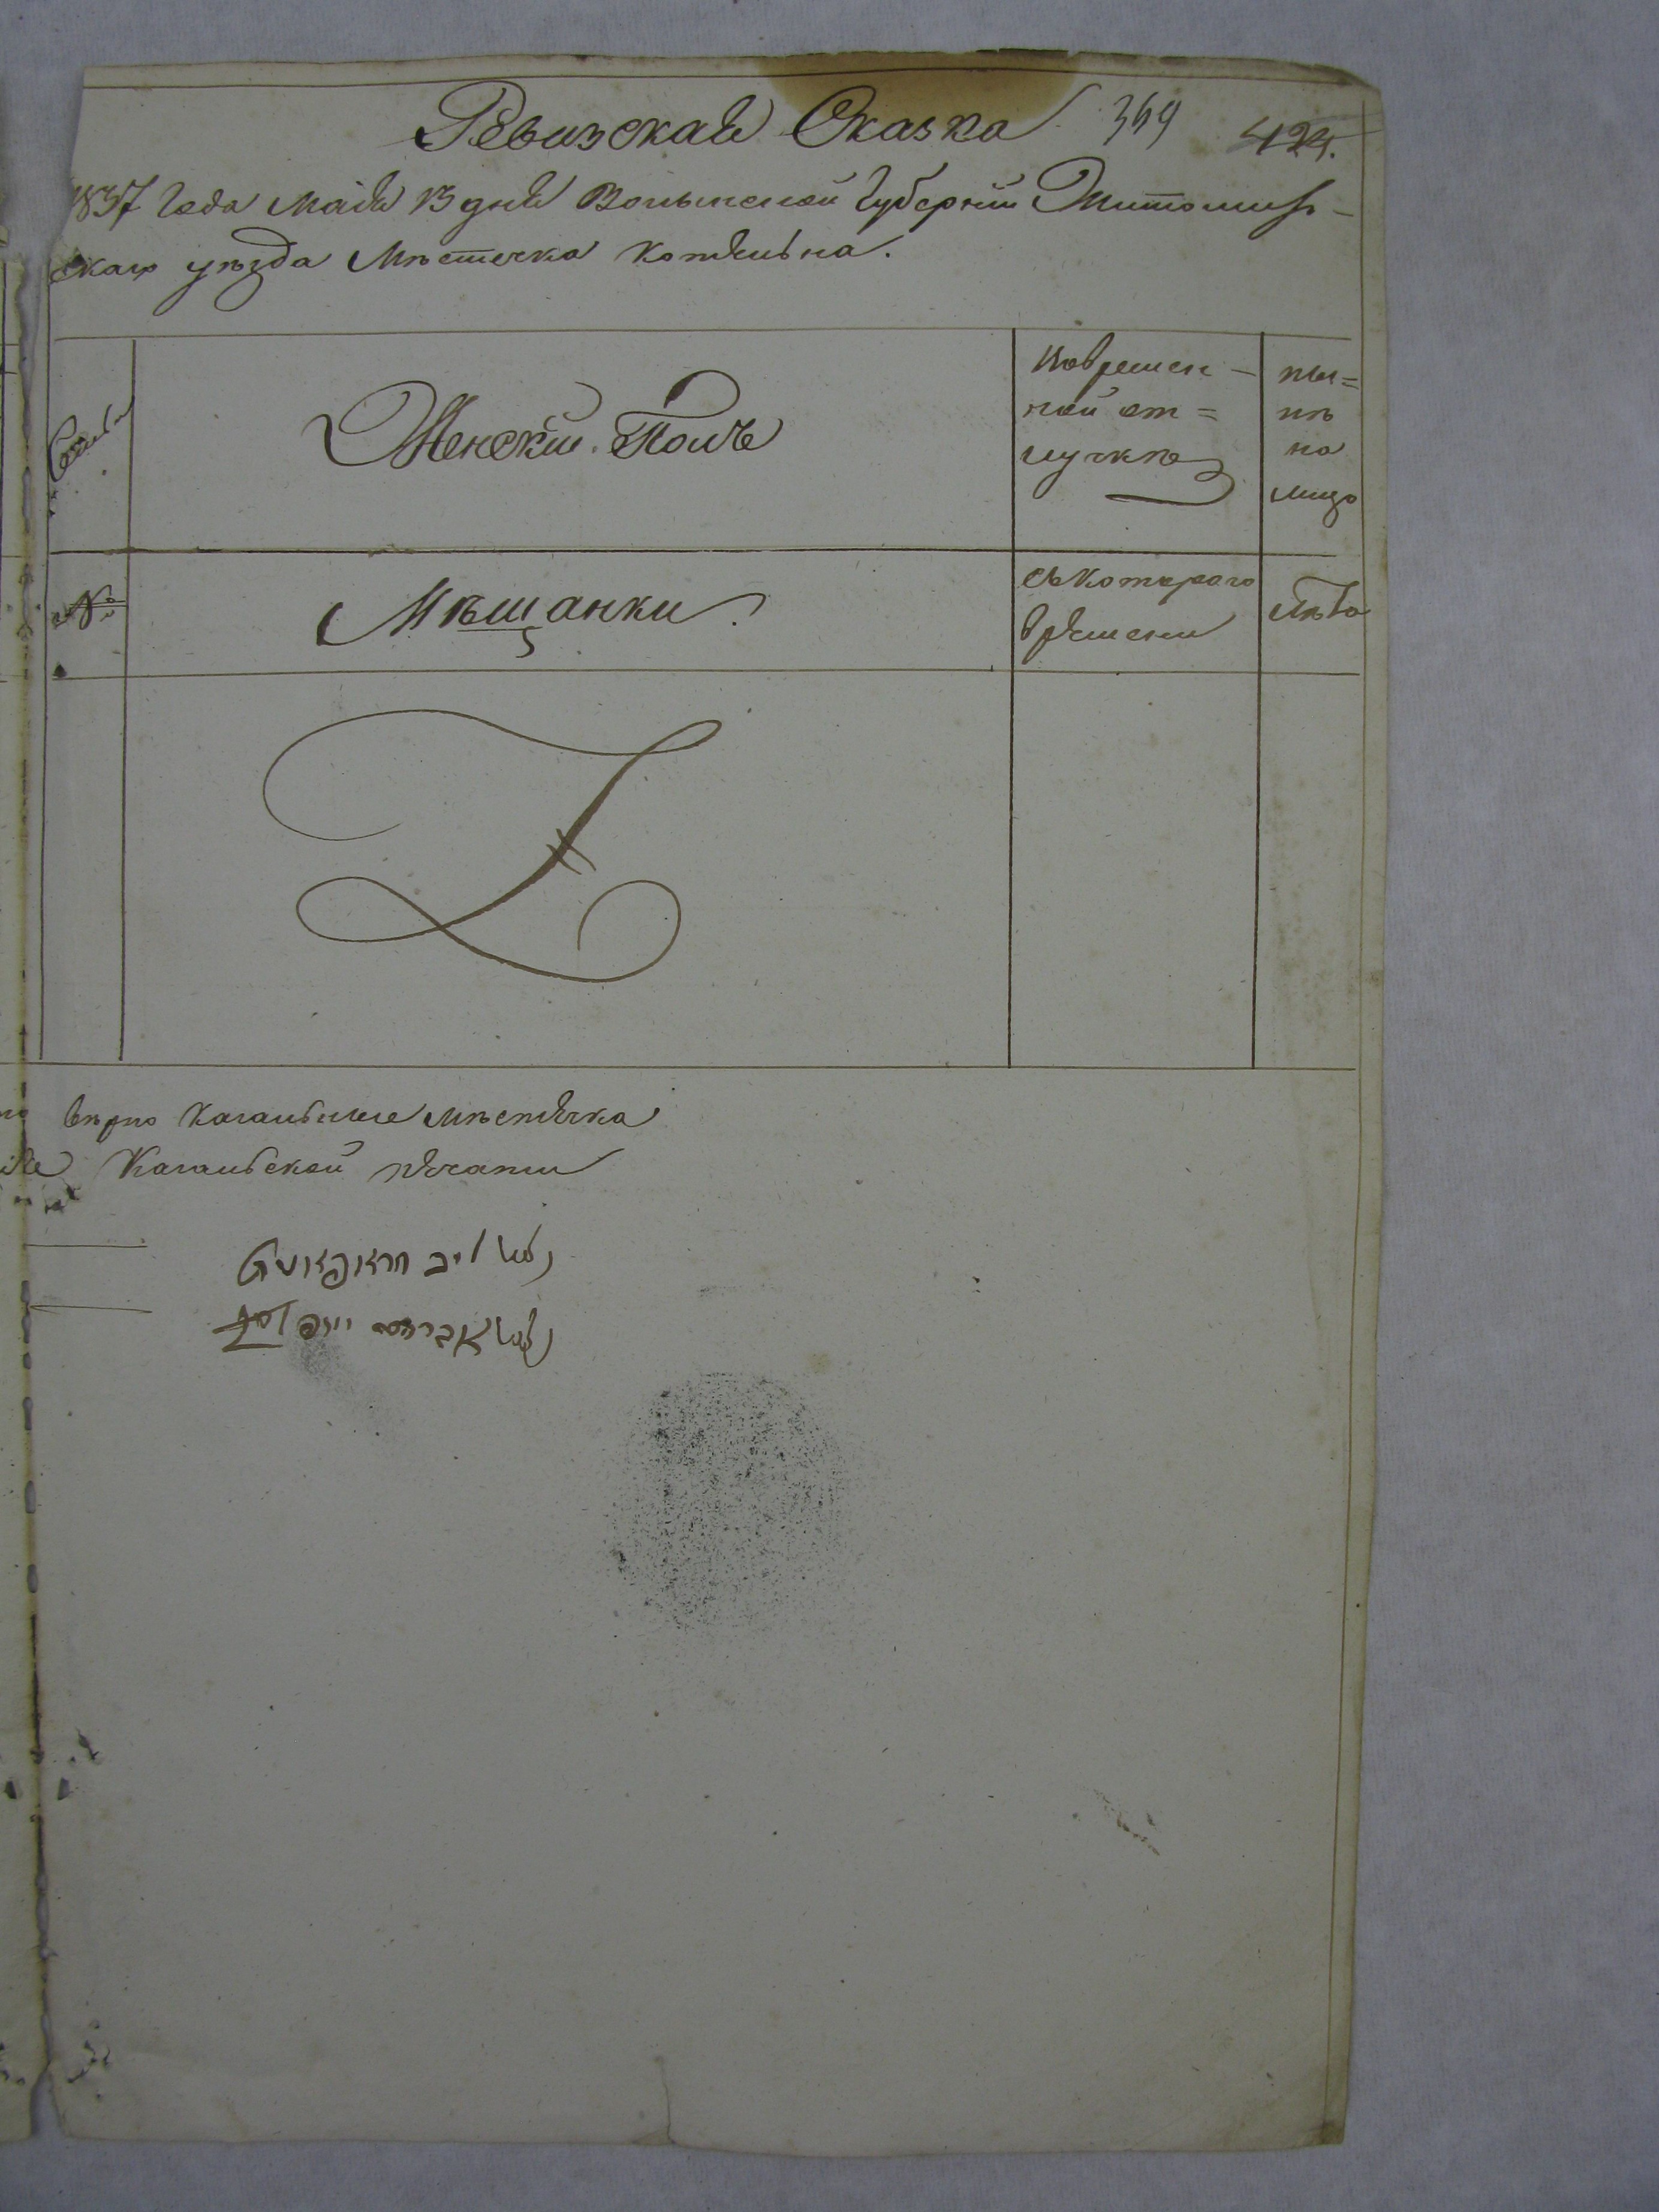 Ревизская Сказка 369 424.
1837 Года Маія 13 дня Волынской Губерніи Житомир-
скаго уезда Местечка Котельна.
Семьи
Женскій Полъ
Вовремен-
ной от=
лучке
ны=
не
на
лицо
№
Мещанки
съ котораго
времени
Лета
верно Кагальные местечка
Кагальской печати
נאם
נאם אברהם